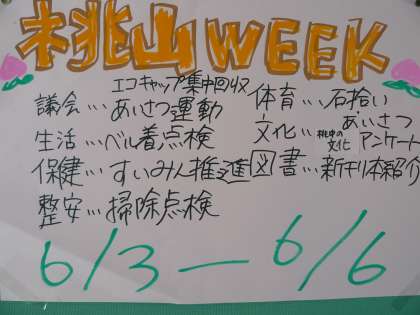 桃山WEEK
エコキャップ集中回収
議会…あいさつ運動
生活…ベル着点検
保健…すいみん推進
整安…掃除点検
体育…石拾い
文化…桃中の文化 あいさつアンケート
図書…新刊本紹介
6/3—6/6